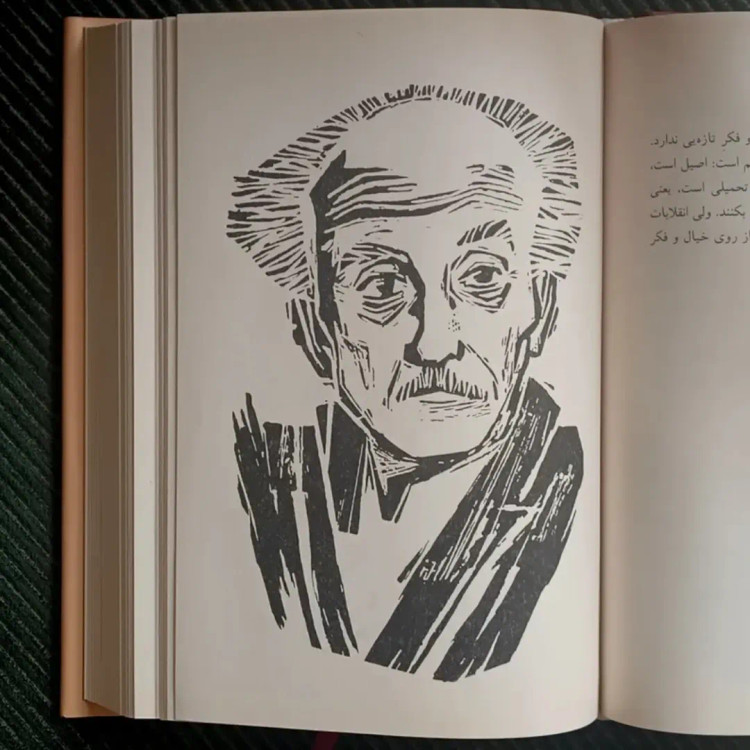 و فکر تازه‌یی ندارد.
م است: اصیل است،
تحمیلی است، یعنی
بکنند. ولی انقلابات
از روی خیال و فکر